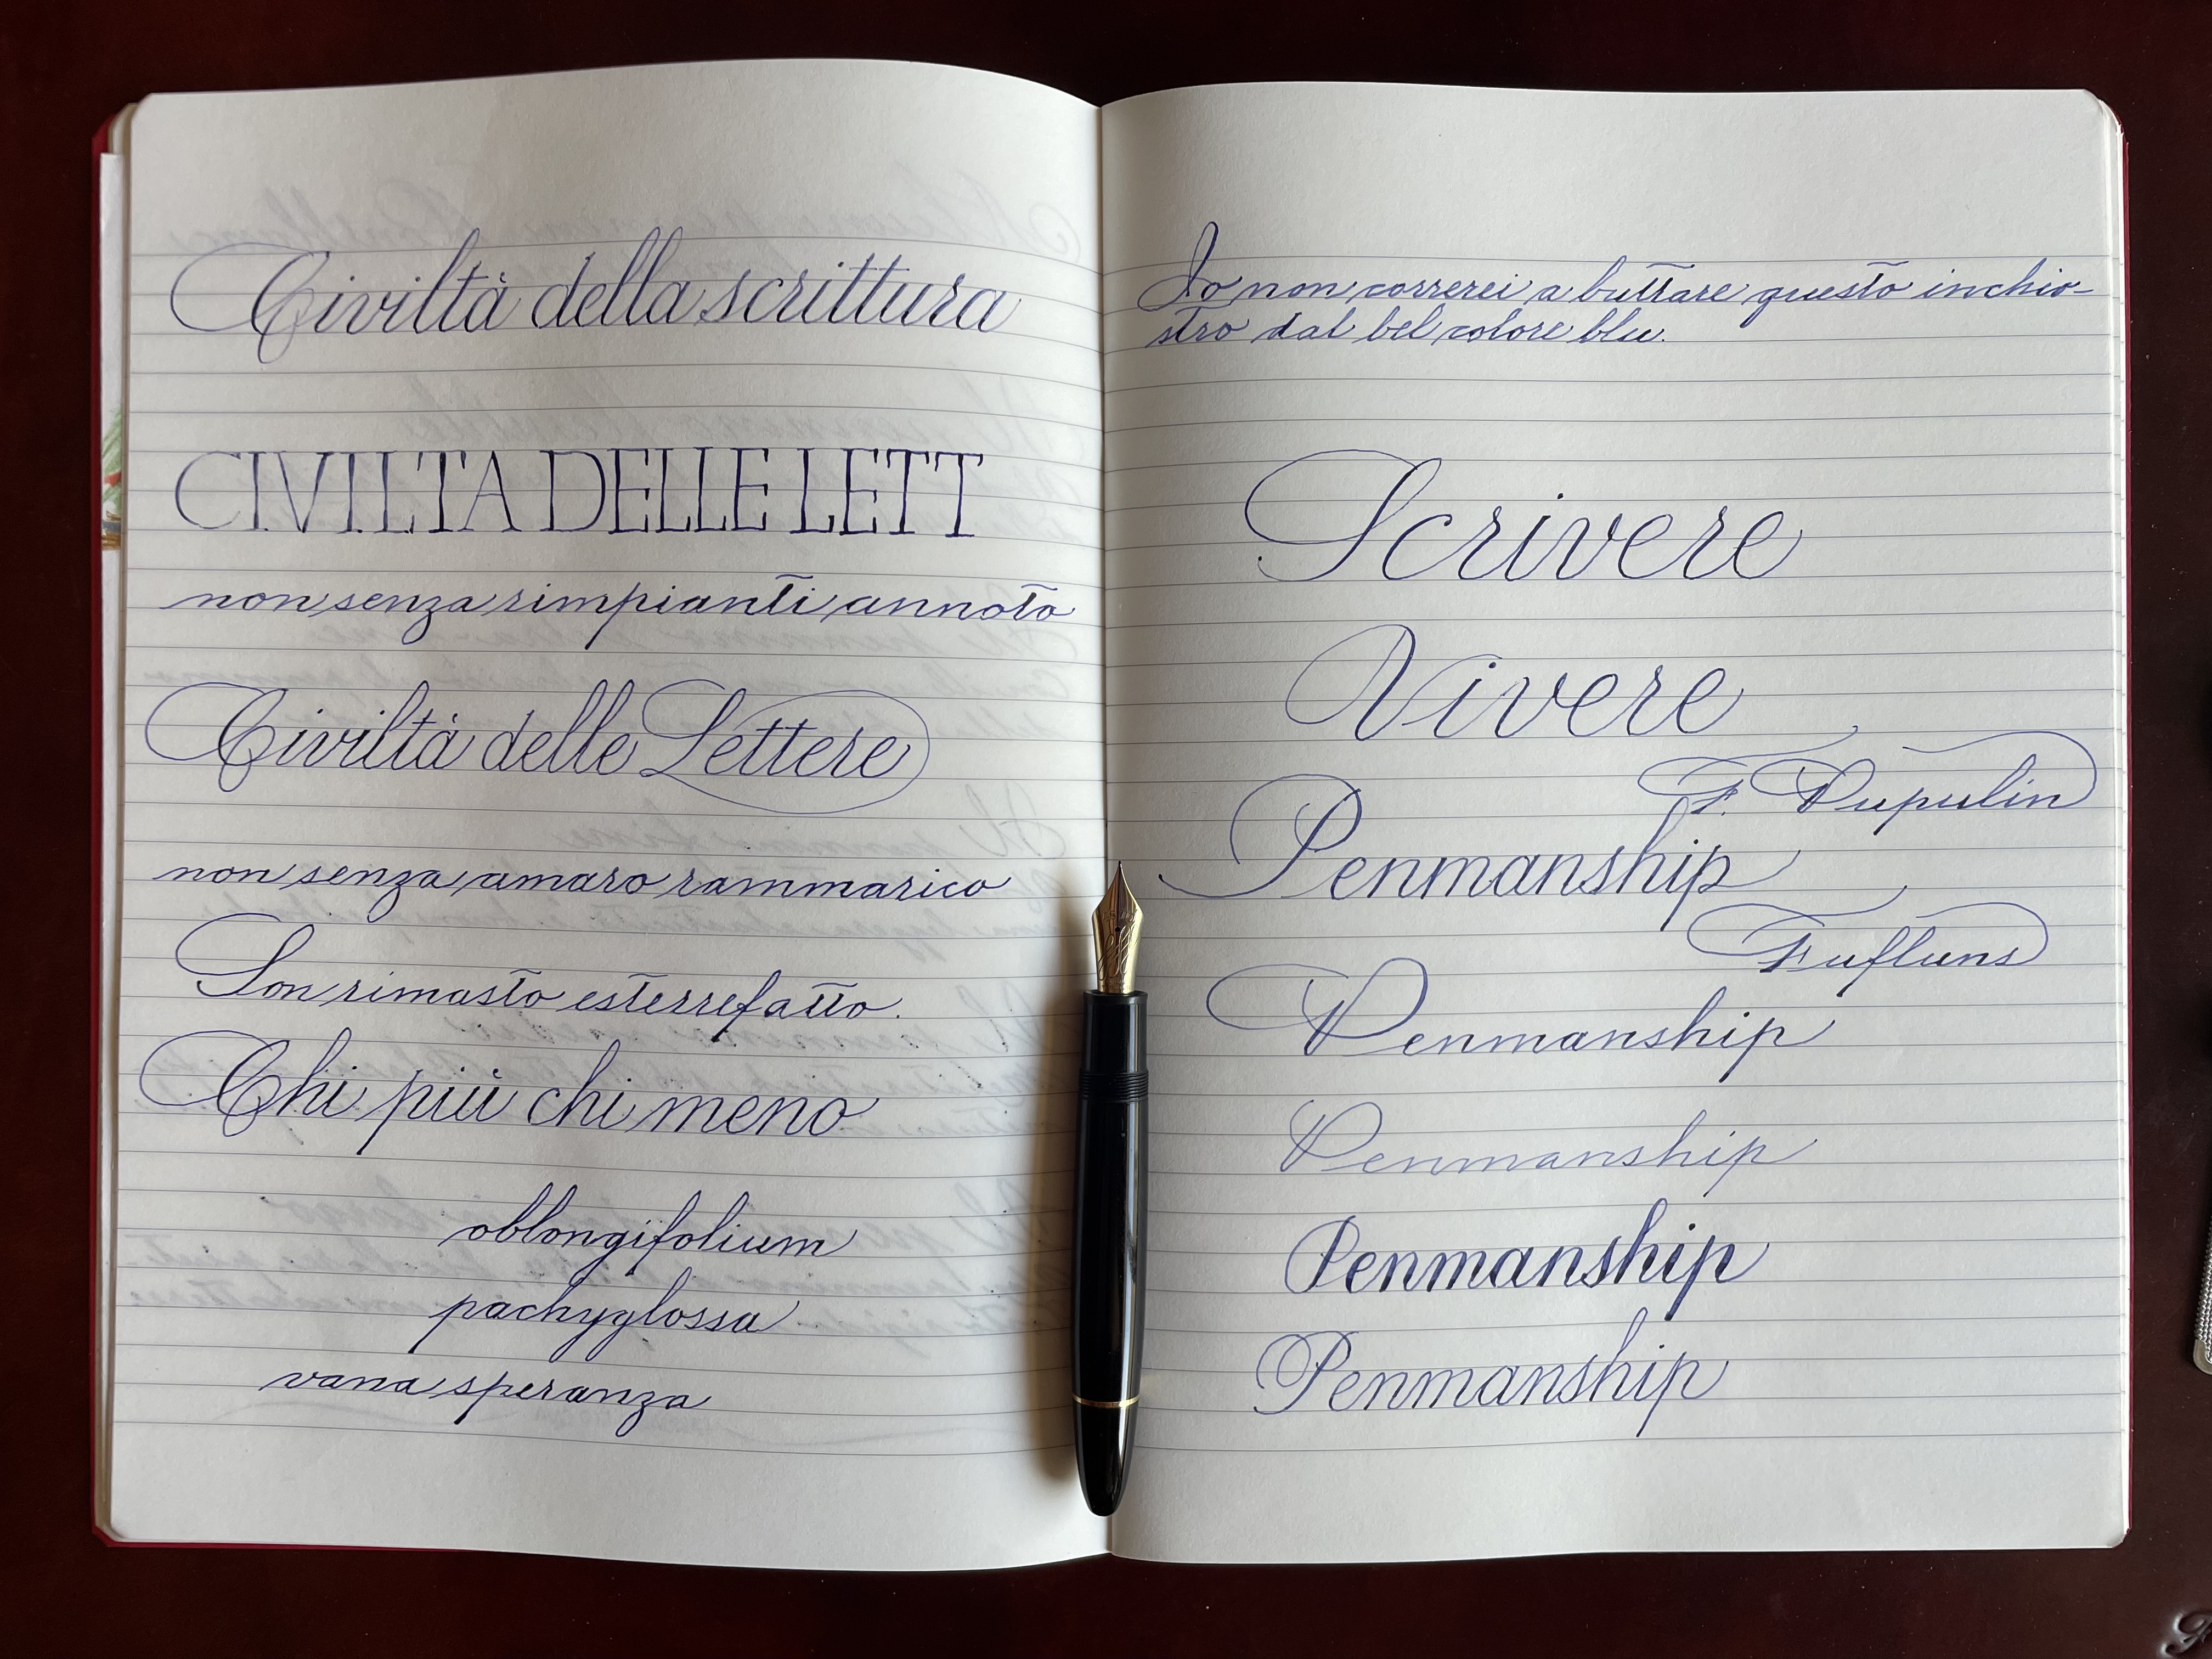 Civiltà della scrittura
CIVILTA DELLE LETT
non senza rimpianti annoto
Civiltà delle Lettere
non senza amaro rammarico
Son rimasto esterrefatto.
Chi più chi meno
oblongifolium
pachyglossa
vana speranza
Io non correrei a buttare questo inchio-
stro dal bel colore blu.
Scrivere
Vivere
F. Pupulin
Penmanship
Fufluns
Penmanship
Penmanship
Penmanship
Penmanship